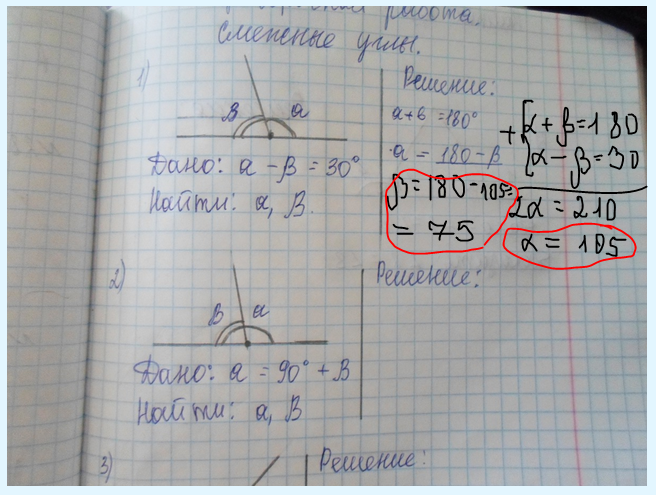 работа.
Смежные углы.
1)
B a
Дано: a - β = 30°
Найти: a, B.
Решение:
a + b = 180°
a = 180 - β
+ { α + β = 180
α - β = 30
2α = 210
α = 105
β = 180 - 105 =
= 75
2)
B a
Дано: a = 90° + B
Найти: a, B
Решение:
3)
Решение: